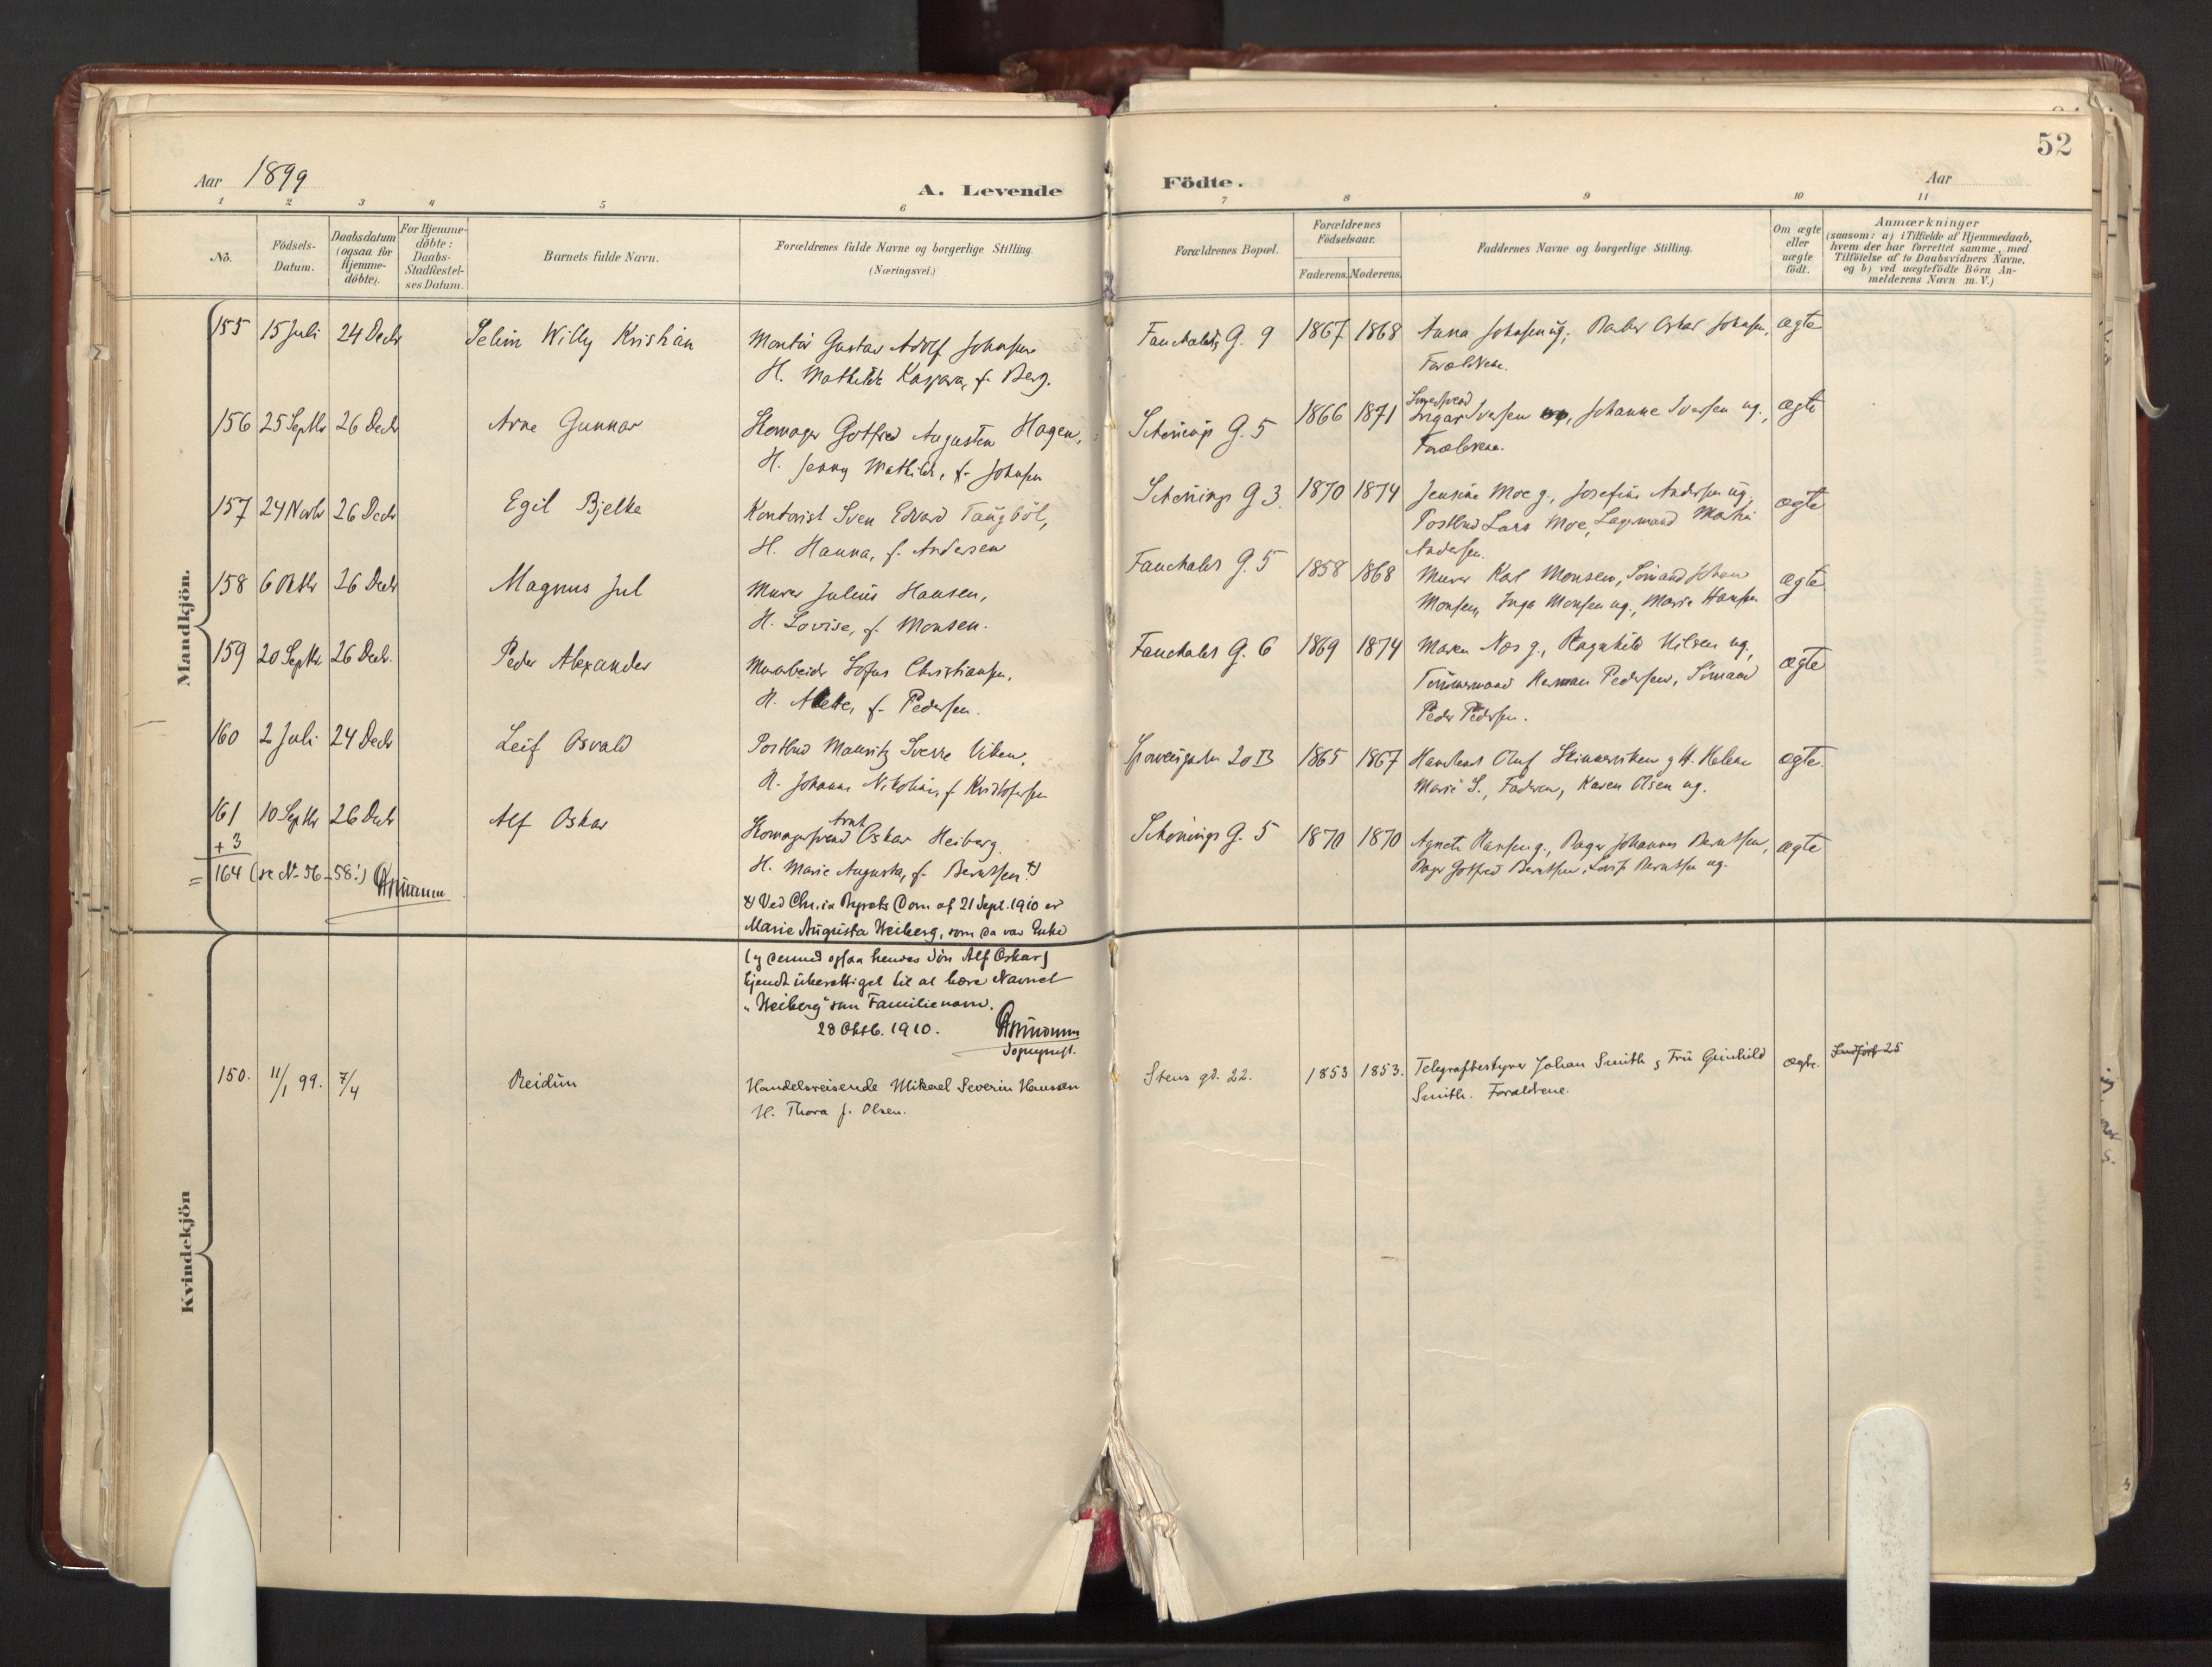 52
Aar 1899
A. Levende Födte.
Aar
1 2 3 4 5 6 7 8 9 10 11
No.
Födsels-Datum.
Daabsdatum (ogsaa for Hjemme-döbte).
For Hjemme-döbte: Daabs-Stadfæstel-ses Datum.
Barnets fulde Navn.
Forældrenes fulde Navne og borgerlige Stilling.
(Næringsvei.)
Forældrenes Bopæl.
Forældrenes Födselsaar.
Faderens. Moderens.
Faddernes Navne og borgerlige Stilling.
Om ægte eller uægte födt.
Anmærkninger
(saasom: a) i Tilfælde af Hjemmedaab, hvem der har forrettet samme, med Tilföielse af to Daabsvidners Navne, og b) ved uægtefödte Börn An-melderens Navn m. V.)
Mandkjön.
155 15 Juli 24 Decbr Selim Willy Kristian Montör Gustav Adolf Johnsen Fauchalds G. 9 1867 1868 Anna Johnsen ug., Oskar Johnsen, ægte
H. Mathilde Kaspara, f. Berg. Forældrene.
156 25 Septbr 26 Decbr Arne Gunnar Skomager Gotfred Augustin Hagen, Schönings G. 5 1866 1871 Iversen, Johanne Iversen ug., ægte
H. Jenny Mathilde, f. Johnsen Forældrene.
157 24 Novbr 26 Decbr Egil Bjelke Kontorist Sven Edvard Taugböl, Schönings G 3. 1870 1874 Jensine Moe g., Josefine Andersen ug., ægte
H. Hanna, f. Andersen Postbud Lars Moe, Lagermand Martin
Andersen.
158 6 Oktbr 26 Decbr Magnus Jul Murer Julius Hansen, Fauchalds G. 5 1858 1868 Murer Karl Monsen, Sömand Johan ægte
H. Lovise, f. Monsen. Monsen, Inga Monsen ug., Marie Hansen
159 20 Septbr 26 Decbr. Peder Alexander Murarbeider Sofus Christiansen, Fauchalds G. 6 1869 1874 Maren Næs g., Ragnhild Nilsen ug., ægte
H. Alette, f. Pedersen. Tömmermand Herman Pedersen, Sömand
Peder Pedersen.
160 2 Juli 24 Decbr Leif Osvald Postbud Mauritz Sverre Viken, Sporveisgaden 20 B 1865 1867 Oluf g H. Helene ægte.
H. Johanne Nikoline, f. Kristofersen Marie S., Faderen, Karen Olsen ug.
161 10 Septbr 26 Decbr Alf Oskar Skomagersvend Arnt Oskar Heiberg. Schönings G. 5 1870 1870 Agnete Hansen g., Bager Johannes Berntsen, ægte
+ 3
H. Marie Augusta, f. Berntsen x) Bager Gotfred Berntsen, Berntsen ug.
= 164 (se No 56-58.)
x) Ved Chr.ia Byrets Dom af 21 Sept. 1910 er
Marie Augusta Heiberg, som da var Enke
(og dermed ogsaa hendes Sön Alf Oskar)
kjendt uberettiget til at bære Navnet
"Heiberg" som Familienavn.
28 Oktb. 1910.
Sognepræst.
Kvindekjön
150. 11/1 99. 7/4 Reidun Handelsreisende Mikael Severin Hanssen Stens gd. 22. 1853 1853. Telegrafbestyrer Johan Smith, Fru Gunhild ægte. Indfört 25
H. Thora f. Olsen. Smith. Forældrene.